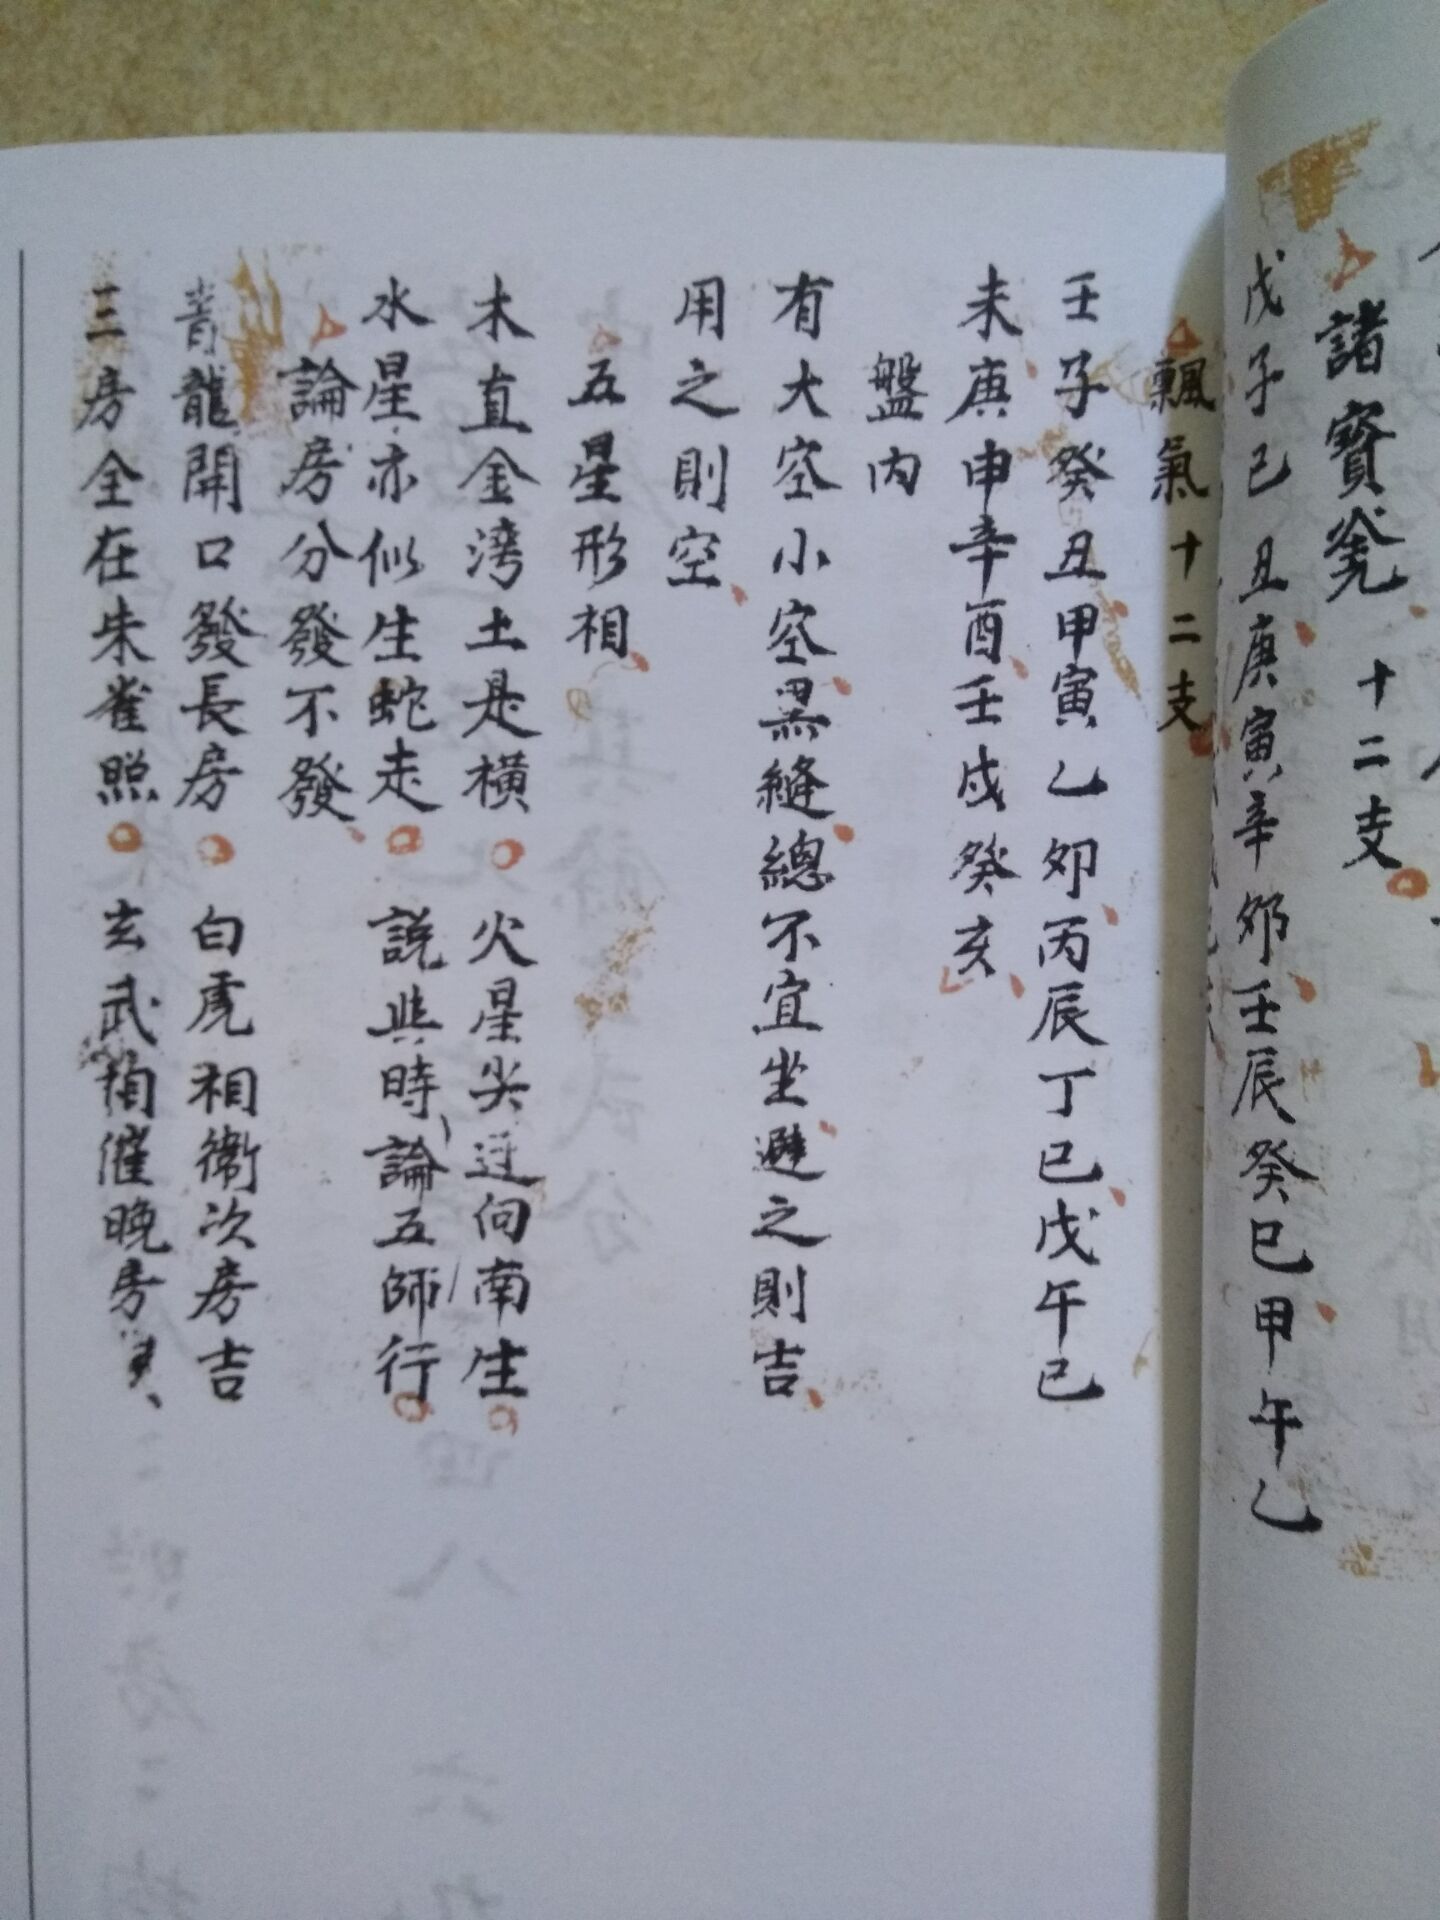 諸寶瓮 十二支
戊子己丑庚寅辛夘壬辰癸巳甲午乙
飄氣十二支
壬子癸丑甲寅乙夘丙辰丁巳戊午己
未庚申辛酉壬戌癸亥
盤内
有大空小空黑縫總不宜坐避之則吉
用之則空
五星形相
木直金湾土是橫 火星尖迋向南生
水星亦似生蛇走 説與時論五師行
論房分發不發
青龍開口發長房 白虎相衛次房吉
三房全在朱雀照 玄武催晚房